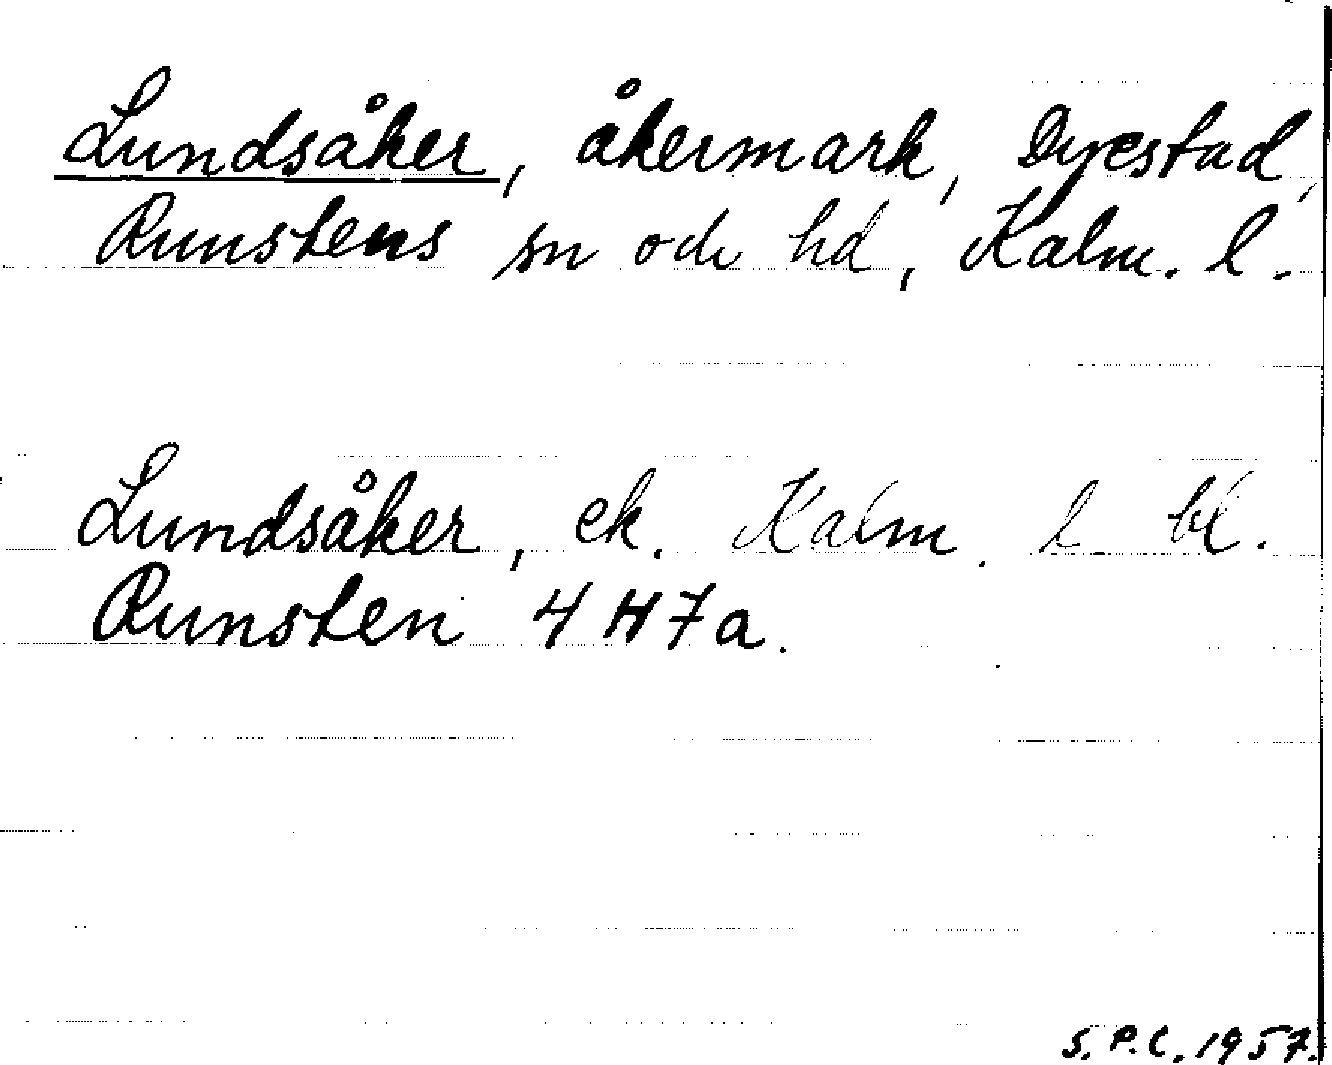 Lundsåker, åkermark, Dyestad,
Runstens sn och hd, Kalm. l.
Lundsåker, ek. Kalm. l bl.
Runsten 4H7a.
S.P.C. 1957.